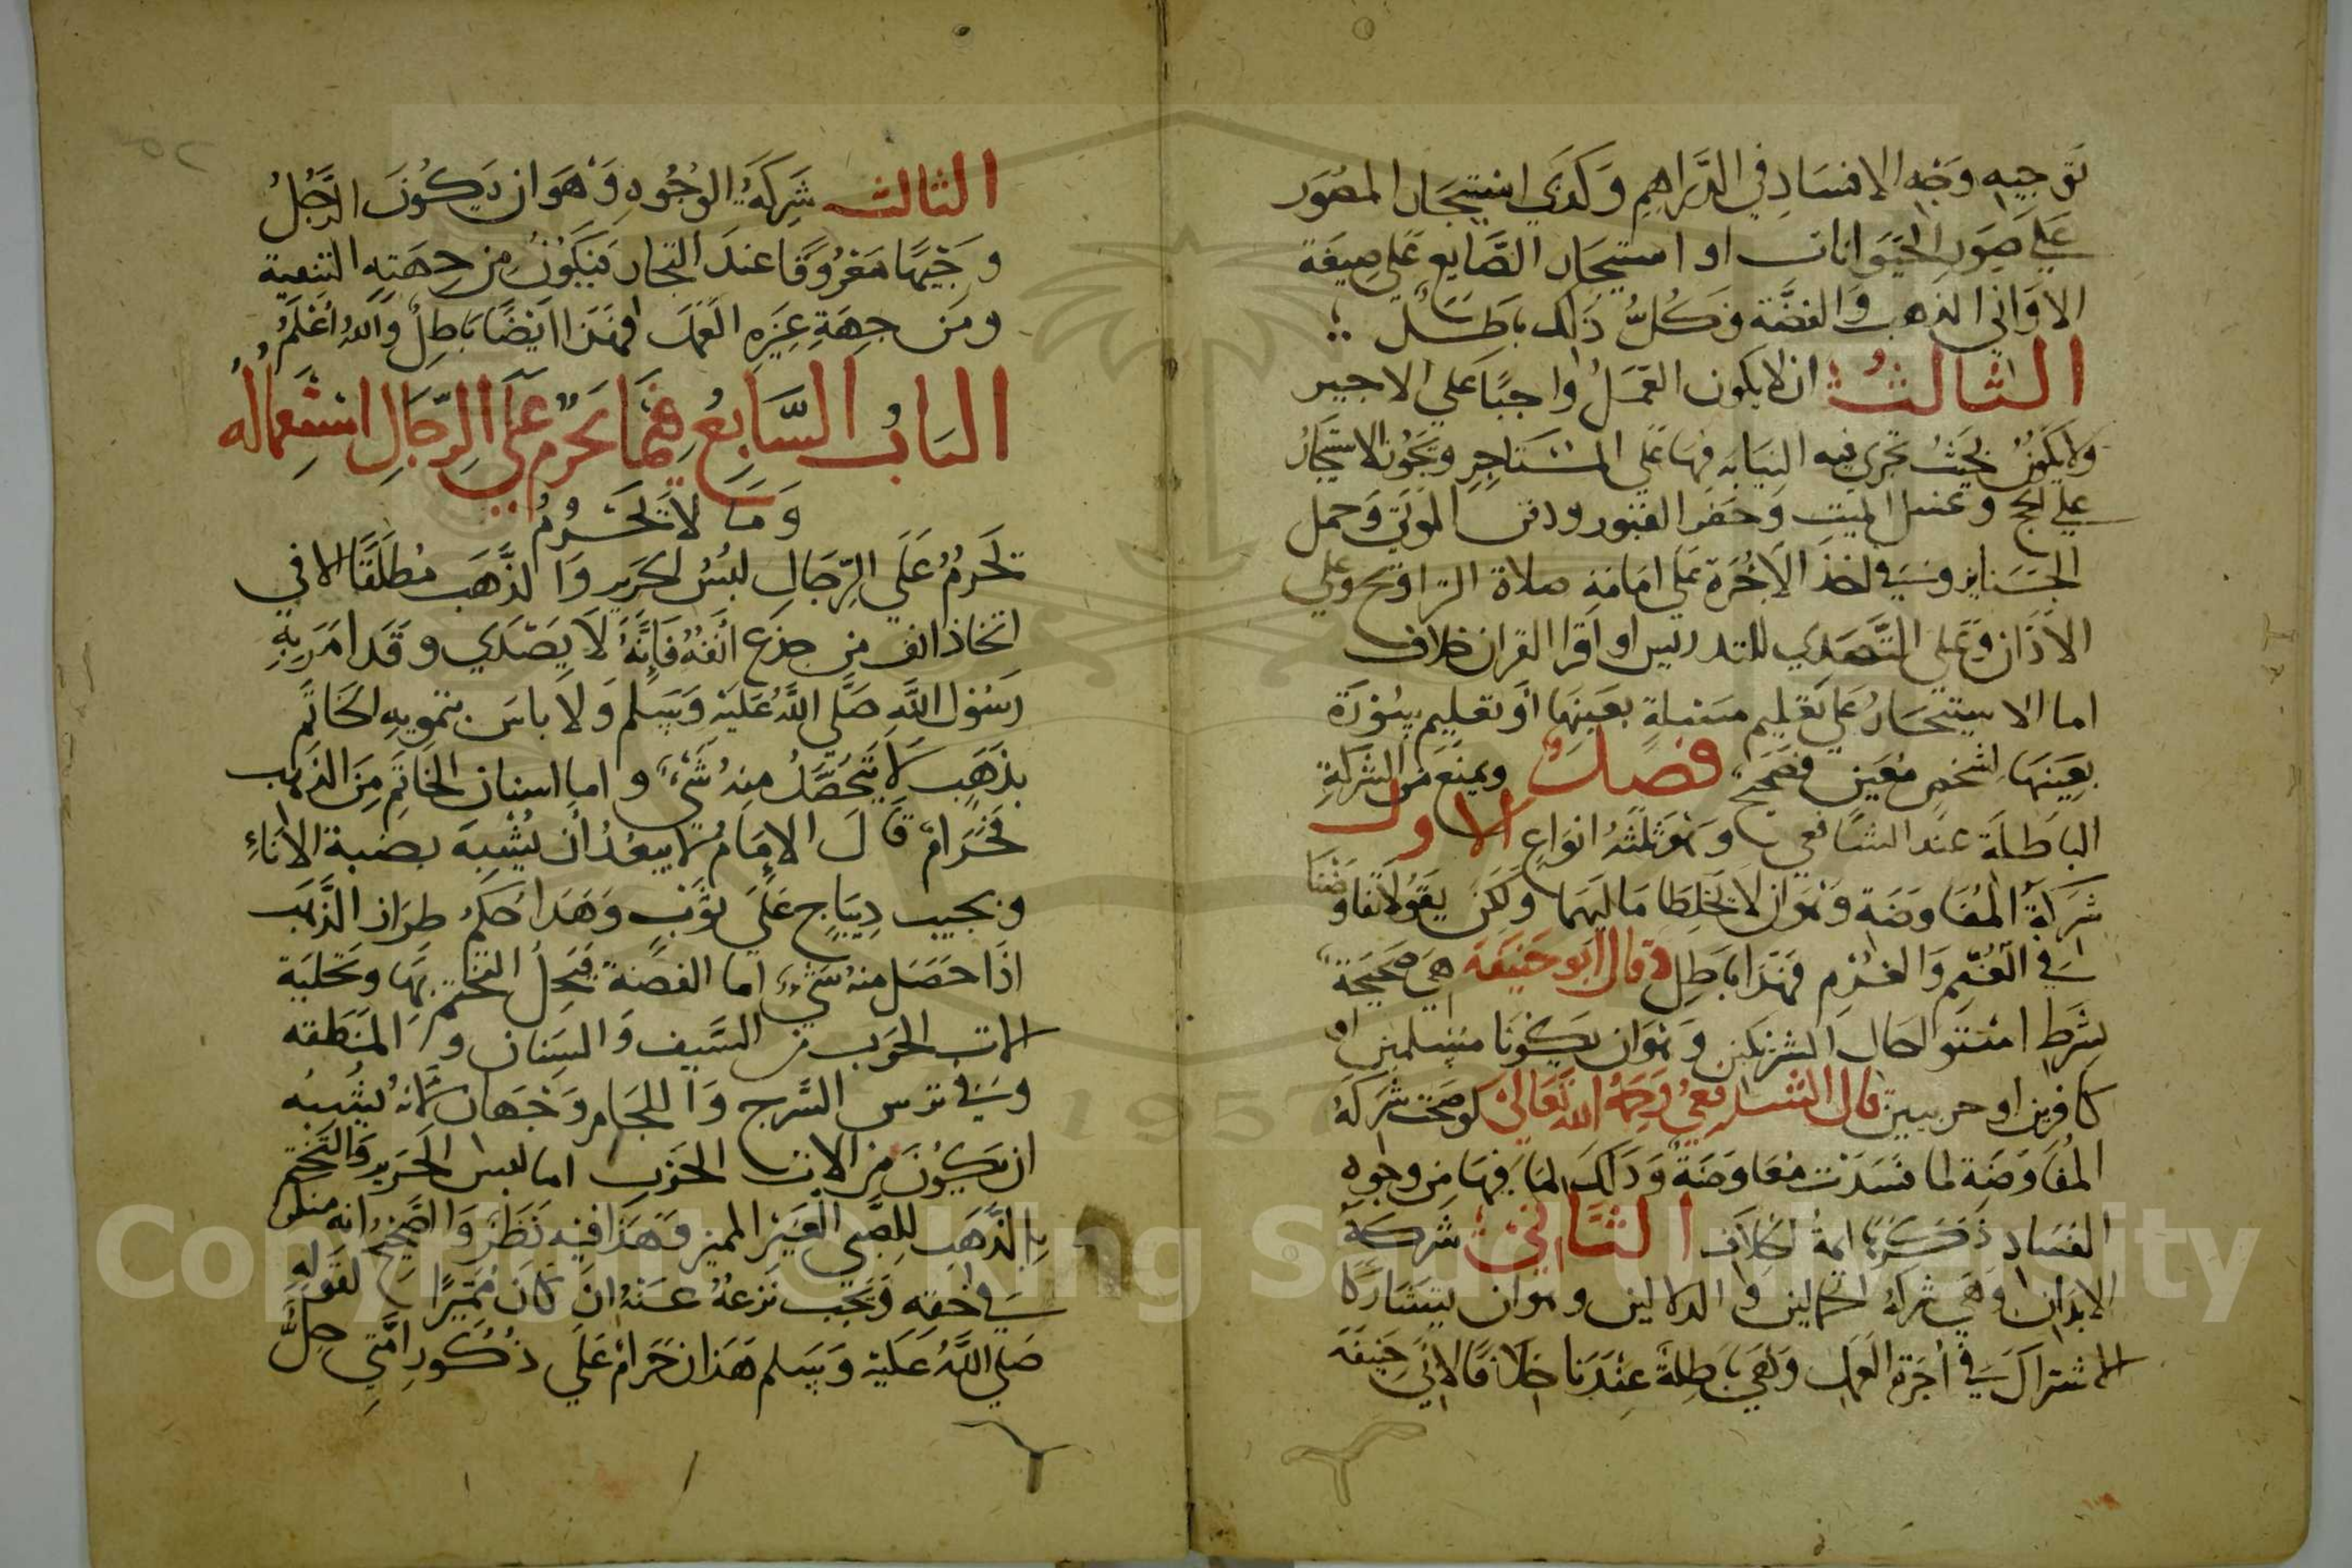 توجيه وجه الافساد في الدراهم وكذي استيجار المصور
على صور الحيوانات او استيجار الصايع على صيغة
الاواني الذهب والفضة وكل ذلك باطل
الثالث ان لا يكون العمل واجبا علي الاجير
ولا يكون بحيث تجري فيه النيابه فيها علي المستاجر ويجوز الاستيجار
علي الحج وغسل الميت وحفر القبور ودفن الموتي وحمل
الجنايز وفي اخذ الاجرة علي امامة صلاة التراويح وعلي
الاذان وعلي التصدي للتدريس او اقرا القران خلاف
اما الاستيجار علي تعليم مسئلة بعينها او تعليم سورة
بعينها لشخص معين فصحيح فصل ويمنع من الشركة
الباطلة عند الشافعي وهو ثلثه انواع الاول
شركة المفاوضة وهو ان لا يخلطا ماليهما ولكن يقولا تفاوضنا
في الغنم والغرم فهذا باطل وقال ابو حنيفة هي صحيحة
بشرط استوا الحال الشريكين وهو ان يكونا مسلمين او
كافرين او حربيين قال الشافعي رحمه الله تعالي لو صحت شركة
المفاوضة لما فسدت مفاوضة وذلك لما فيها من وجوه
الفساد ذكرها ايمة الخلاف الثاني شركة
الابدان وهي شركة الحمالين والدلالين وهو ان يتشاركا
الاشتراك في اجرة العمل وهي باطلة عندنا خلافا لابي حنيفة
الثالث شركة الوجوه وهو ان يكون الرجل
وجيها معروفا عند التجار فيكون من جهته التنمية
ومن جهة غيره العمل فهذا ايضا باطل والله اعلم
الباب السابع فيما يحرم على الرجال استعماله
وما لا يحرم
تحرم على الرجال لبس الحرير والذهب مطلقا الا في
اتخاذ انف من جدع انفه فانه لا يصدي وقد امر به
رسول الله صلى الله عليه وسلم ولا باس بتمويه الخاتم
بذهب لا يتحصل منه شيء واما اسنان الخاتم من الذهب
فحرام قال الامام لا يبعد ان يشبه بضبة الاناء
وبجيب ديباج على ثوب وهذا حكم طراز الذهب
اذا حصل منه شيء اما الفضة فيحل التختم بها وتحلية
الات الحرب من السيف والسنان والمنطقه
وفي ترس السرج واللجام وجهان لانه يشبه
ان يكون من الات الحرب اما لبس الحرير والتختم
بالذهب للصبي الغير المميز فهذا فيه نظر والصحيح انه منكر
في حقه ويجب نزعه عنه ان كان مميزا لقوله
صلى الله عليه وسلم هذان حرام على ذكور امتي حل
Copyright © King Saud University
1957